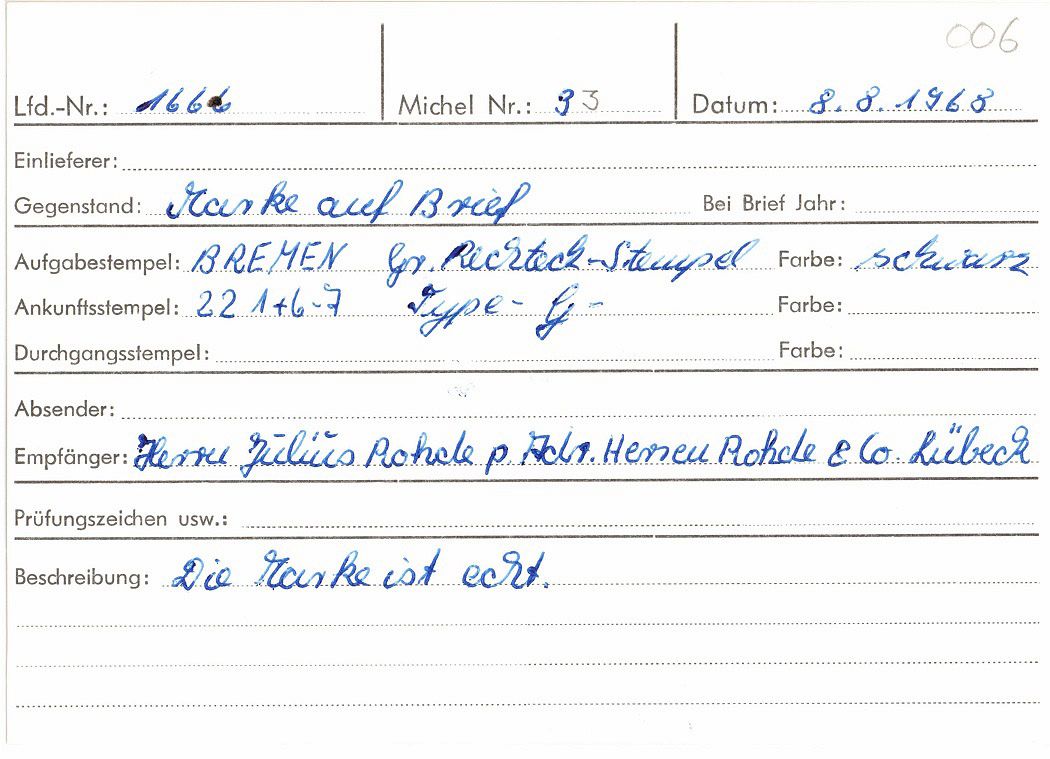 006
Lfd.-Nr.: 1666 Michel Nr.: 33 Datum: 8.8.1968
Einlieferer:
Gegenstand: Marke auf Brief Bei Brief Jahr:
Aufgabestempel: BREMEN Gr. Rechteck-Stempel Farbe: schwarz
Ankunftsstempel: 22 1+6-7 Type - G - Farbe:
Durchgangsstempel: Farbe:
Absender:
Empfänger: Herrn Jülius Rohde p. Adr. Herren Rohde & Co. Lübeck
Prüfungszeichen usw.:
Beschreibung: Die Marke ist echt.